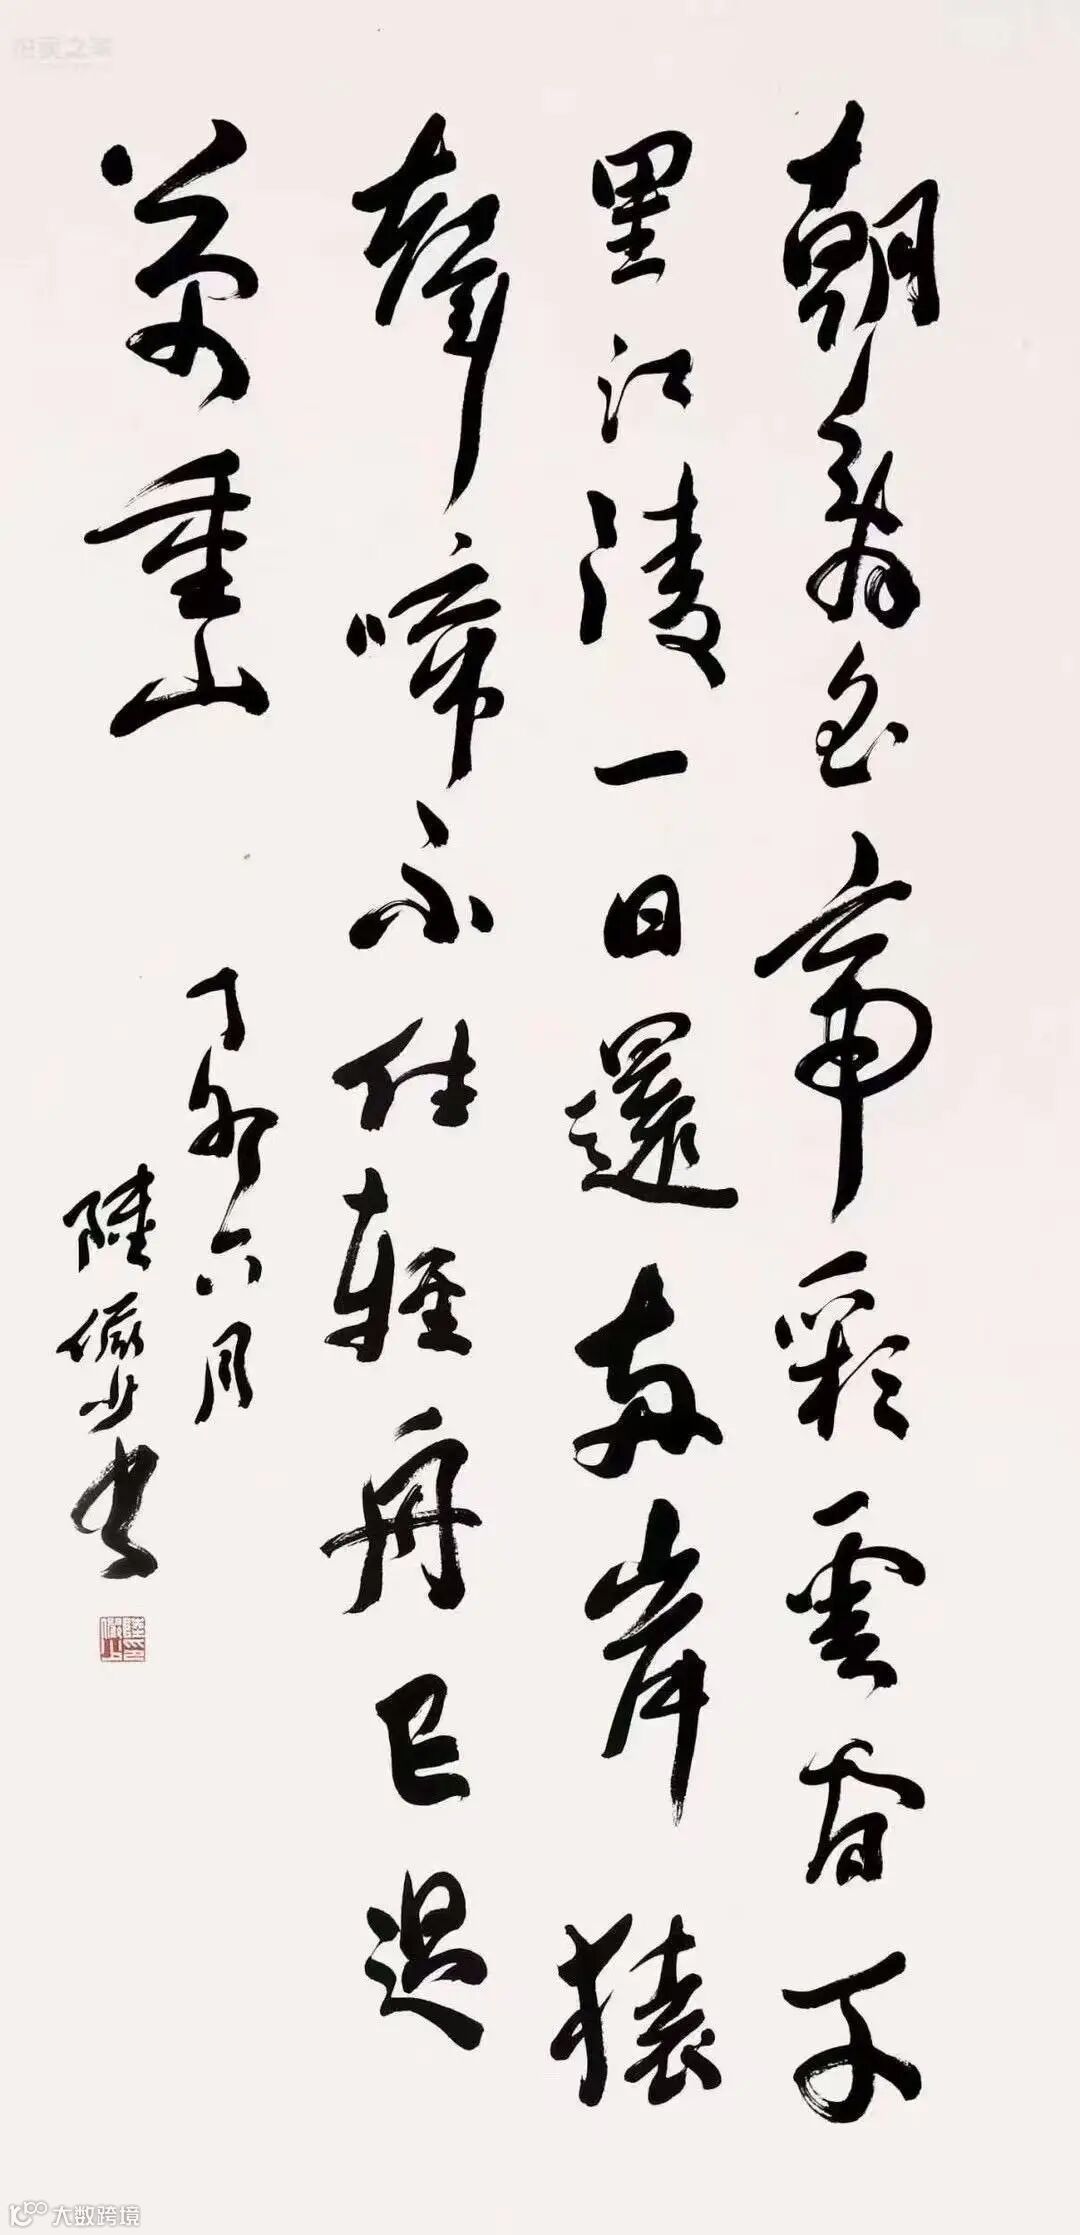 朝辭白帝彩雲間千
里江陵一日還兩岸猿
聲啼不住輕舟已過
萬重山
丁卯六月
陸儼少書
大数跨境